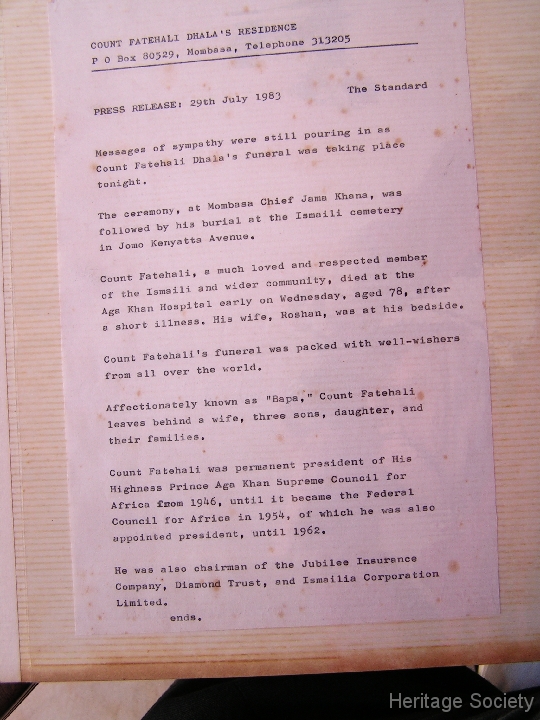 COUNT FATEHALI DHALA'S RESIDENCE
P O Box 80529, Mombasa, Telephone 313205
PRESS RELEASE: 29th July 1983 The Standard
Messages of sympathy were still pouring in as
Count Fatehali Dhala's funeral was taking place
tonight.
The ceremony, at Mombasa Chief Jama Khana, was
followed by his burial at the Ismaili cemetery
in Jomo Kenyatta Avenue.
Count Fatehali, a much loved and respected member
of the Ismaili and wider community, died at the
Aga Khan Hospital early on Wednesday, aged 78, after
a short illness. His wife, Roshan, was at his bedside.
Count Fatehali's funeral was packed with well-wishers
from all over the world.
Affectionately known as "Bapa," Count Fatehali
leaves behind a wife, three sons, daughter, and
their families.
Count Fatehali was permanent president of His
Highness Prince Aga Khan Supreme Council for
Africa from 1946, until it became the Federal
Council for Africa in 1954, of which he was also
appointed president, until 1962.
He was also chairman of the Jubilee Insurance
Company, Diamond Trust, and Ismailia Corporation
Limited.
ends.
Heritage Society